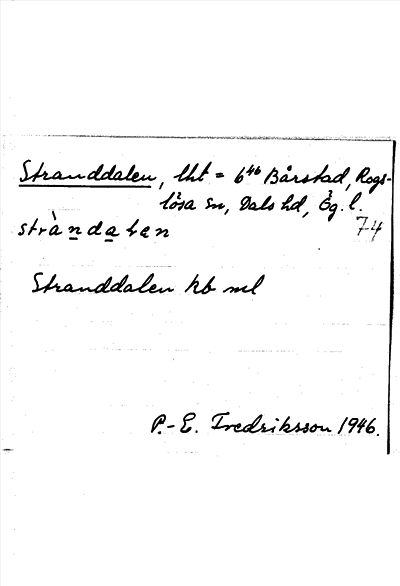 Stranddalen, lht = 6⁴⁶ Bårstad, Rogs-
lösa sn, Dals hd, Ög. l.
74
stràndalen
Stranddalen kb ml
P.-E. Fredriksson 1946.